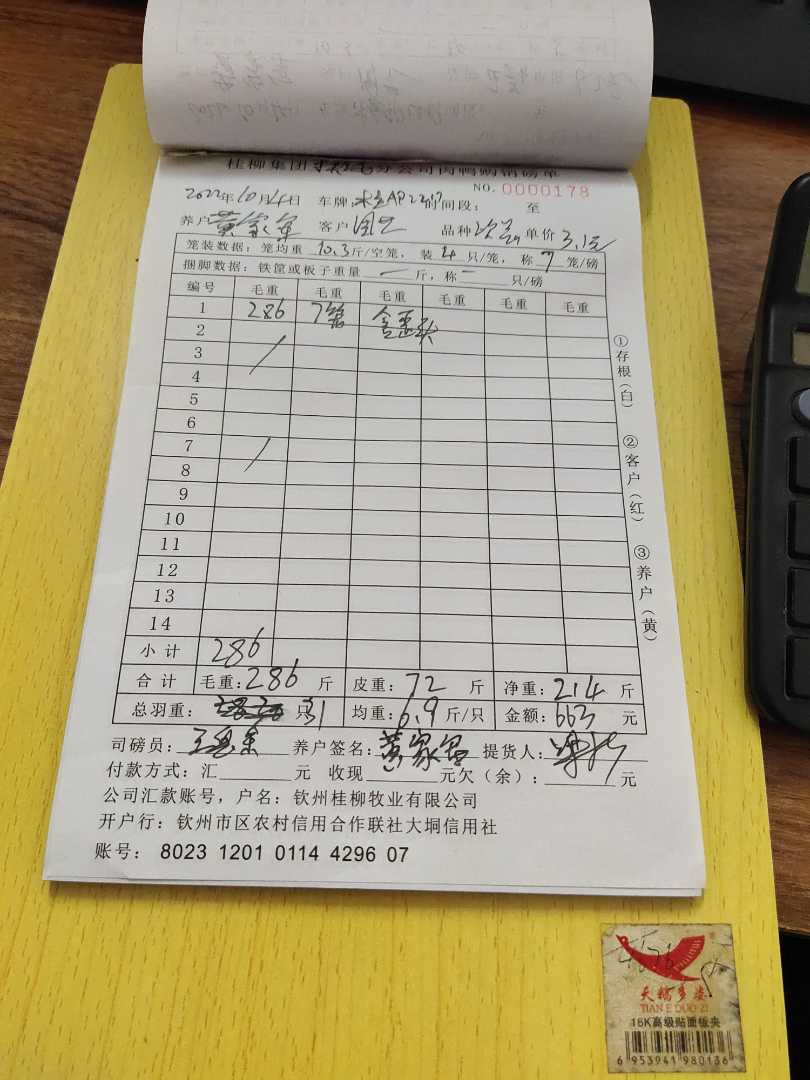 桂柳集团 分公司肉鸭购销磅单
NO. 0000178
2022年10月4日 车牌: 时间段: 至
养户 黄家军 客户 品种 单价 3.1元
笼装数据: 笼均重 10.3 斤/空笼, 装 4 只/笼, 称 7 笼/磅
捆脚数据: 铁筐或板子重量 一 斤, 称 一 只/磅
编号 毛重 毛重 毛重 毛重 毛重 毛重
1 286 7笼 含歪头
2
3
4
5
6
7
8
9
10
11
12
13
14
小计 286
合计 毛重: 286 斤 皮重: 72 斤 净重: 214 斤
总羽重: 只 31 均重: 6.9 斤/只 金额: 663 元
司磅员: 养户签名: 黄家军 提货人:
付款方式: 汇 元 收现 元欠(余): 元
公司汇款账号, 户名: 钦州桂柳牧业有限公司
开户行: 钦州市区农村信用合作联社大垌信用社
账号: 8023 1201 0114 4296 07
①存根(白)
②客户(红)
③养户(黄)
天鹅多姿
TIAN E DUO ZI
16K高级贴面板夹
6 953941 980136